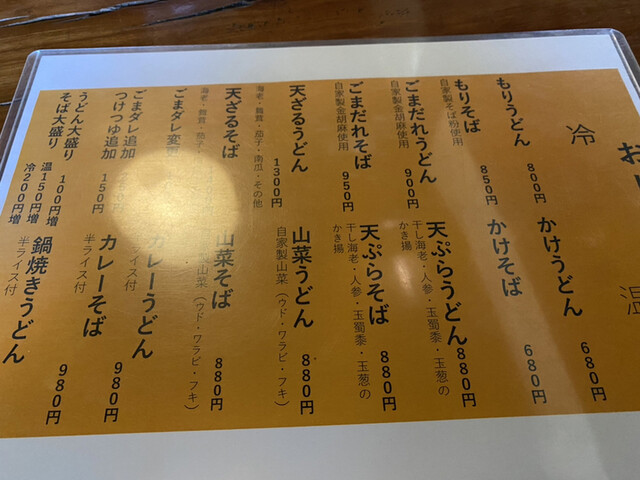 お
冷
もりうどん 800円
もりそば 850円
自家製そば粉使用
ごまだれうどん 900円
自家製金胡麻使用
ごまだれそば 950円
自家製金胡麻使用
天ざるうどん 1300円
海老・舞茸・茄子・南瓜・その他
天ざるそば
海老・舞茸・茄子・
ごまダレ変更
ごまダレ追加
つけつゆ追加 150円
うどん大盛り 100円増
そば大盛り 温150円増
冷200円増
温
かけうどん 680円
かけそば 680円
天ぷらうどん 880円
干し海老・人参・玉蜀黍・玉葱の
かき揚
天ぷらそば 880円
干し海老・人参・玉蜀黍・玉葱の
かき揚
山菜うどん 880円
自家製山菜(ウド・ワラビ・フキ)
山菜そば 880円
山菜(ウド・ワラビ・フキ)
カレーうどん 980円
ライス付
カレーそば 980円
半ライス付
鍋焼きうどん 980円
半ライス付